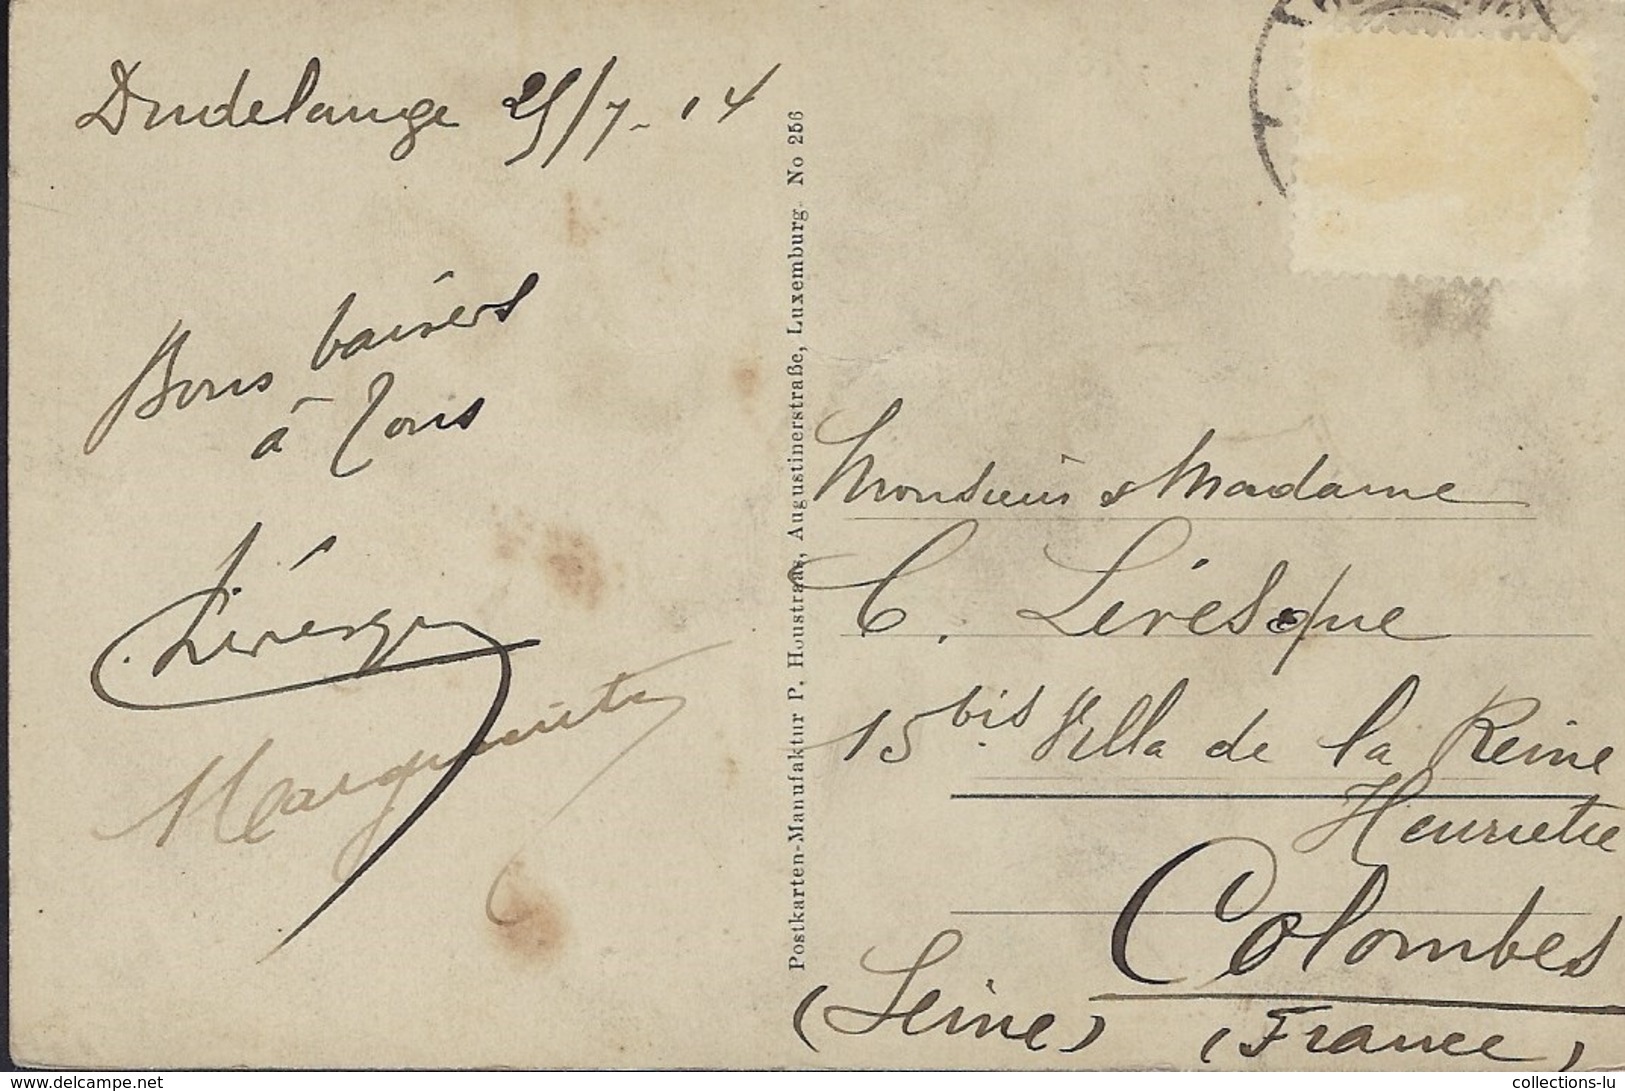 Dudelange 25/7-14
Bons baisers
à Tous
Marguerite
Postkarten-Manufaktur P. Houstraas, Augustinerstraße, Luxemburg. No 256
Monsieur & Madame
C. Lévesque
15 bis Villa de la Reine
Henriette
Colombes
(Seine) (France)
http://www.delcampe.net
collections-lu